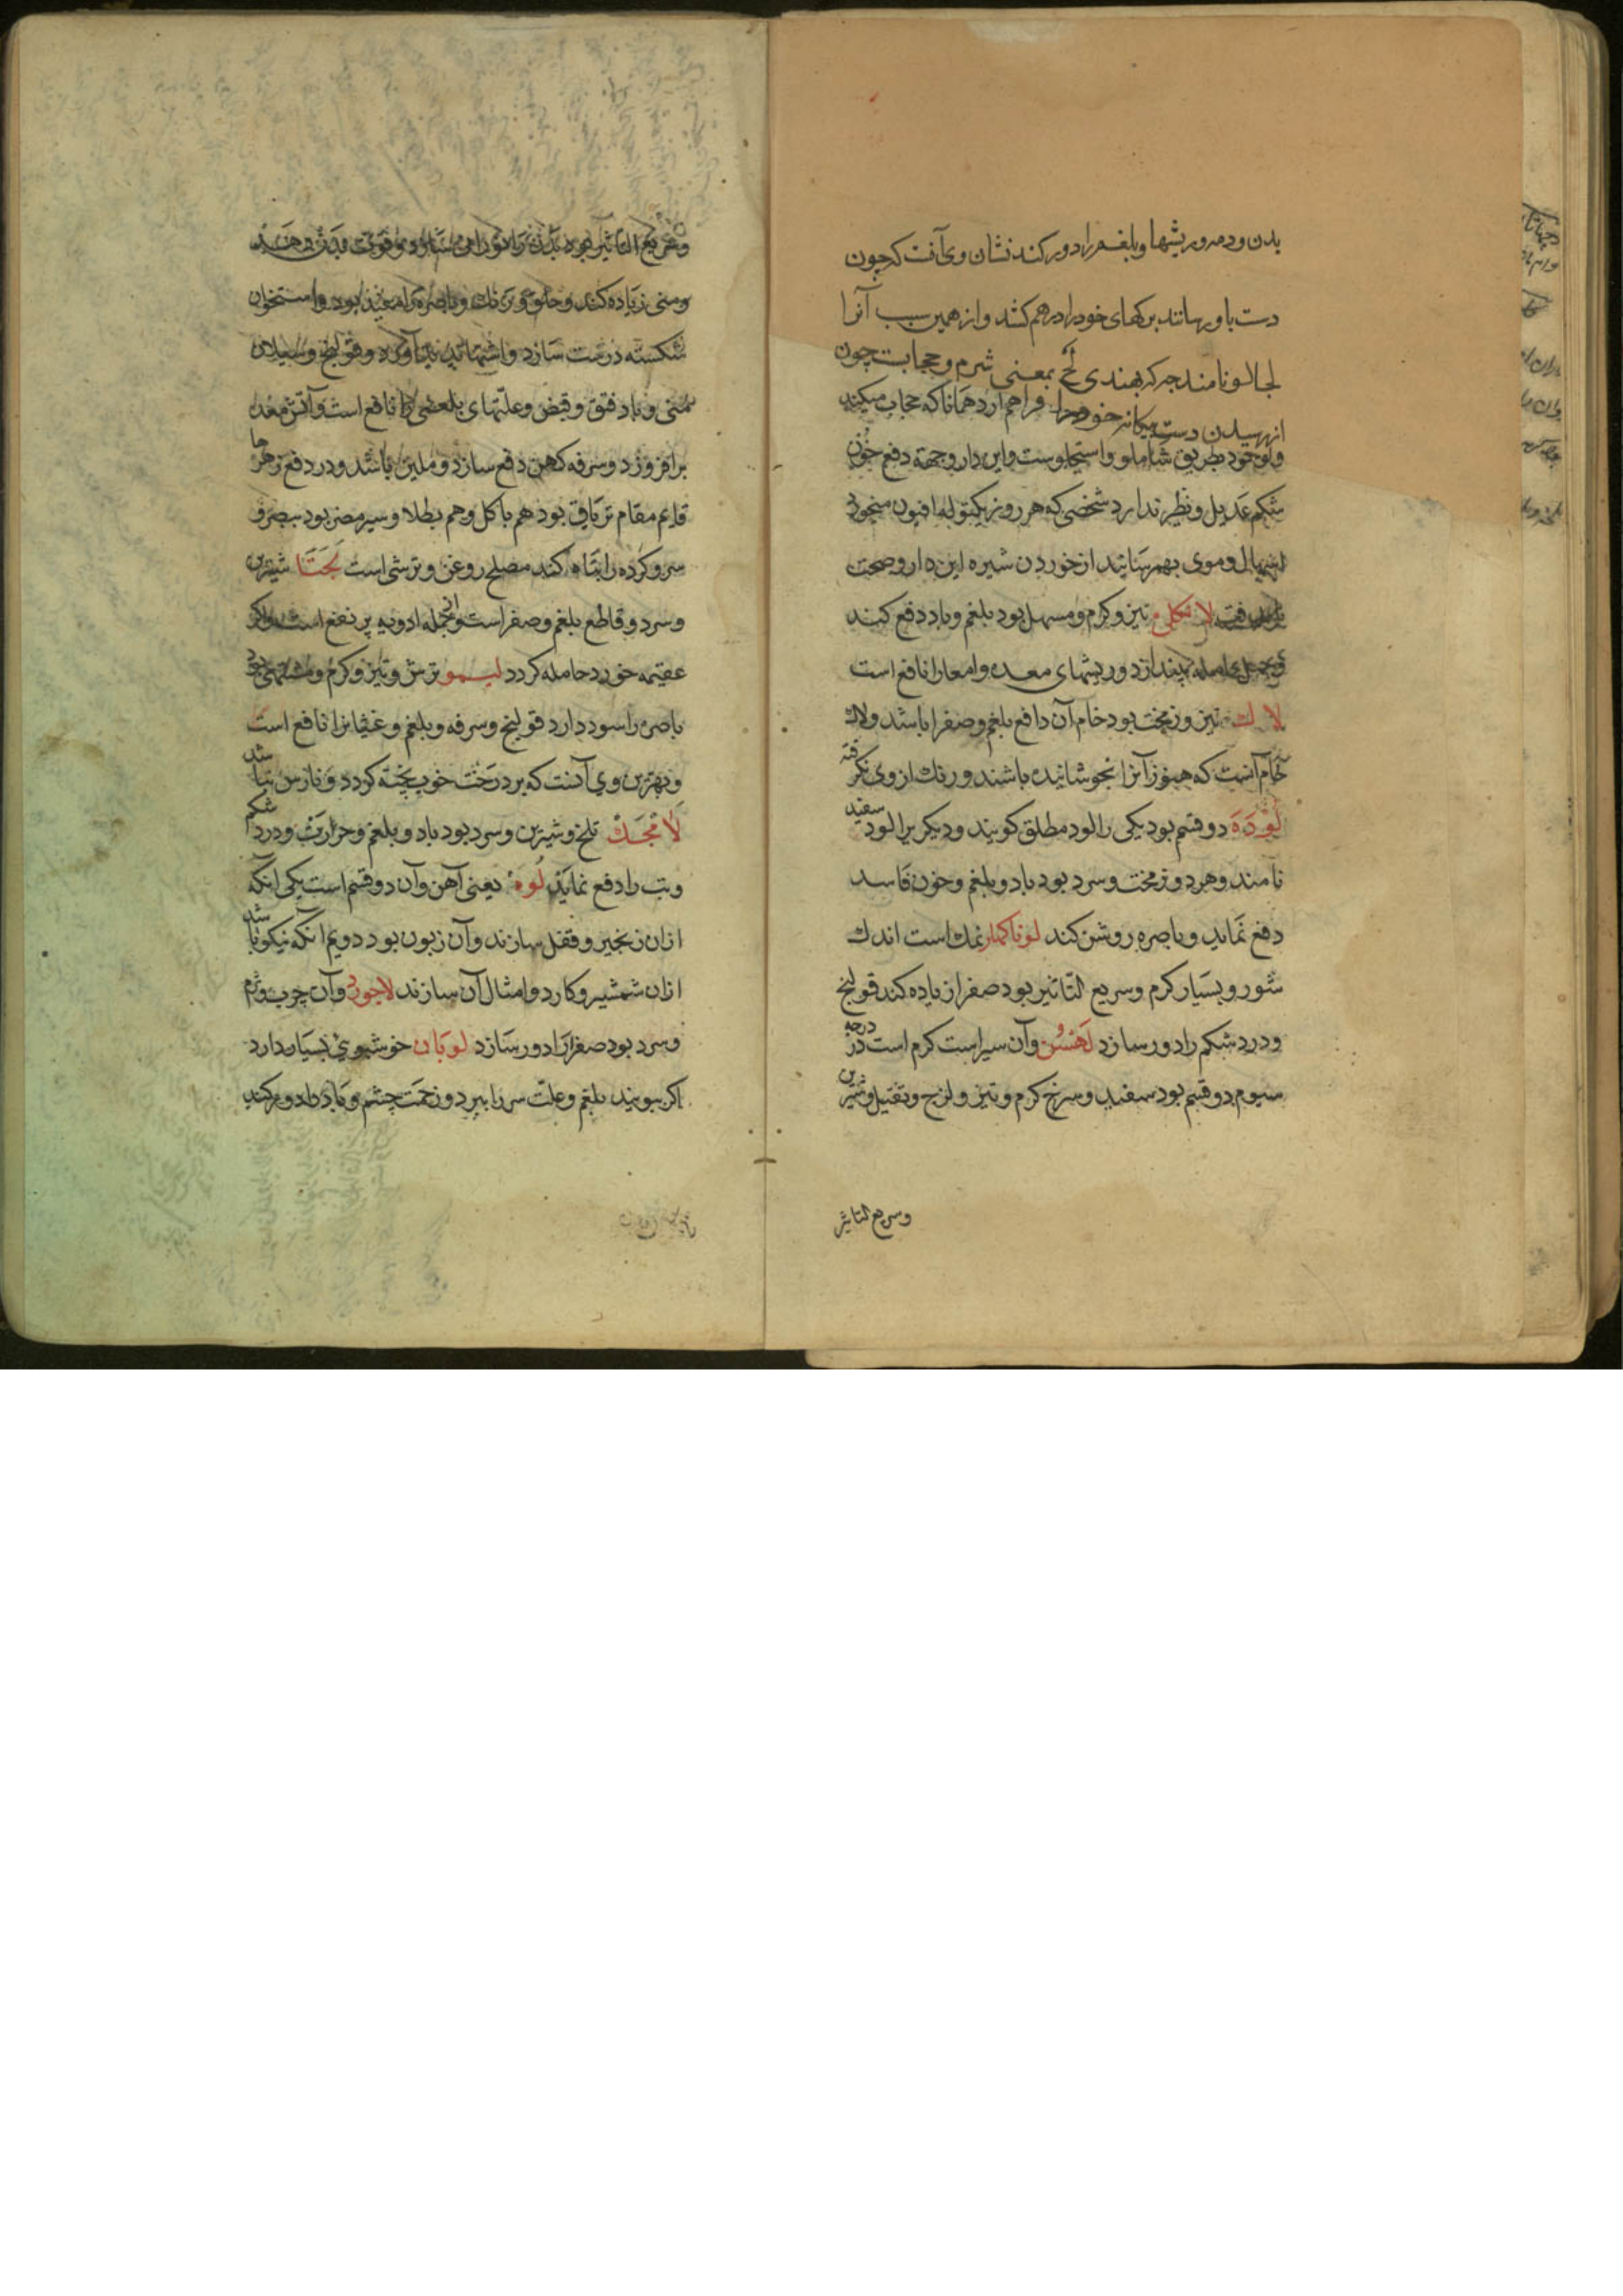 بدن و دمه و ریشها و بلغم را دور کند نشان وی آنت که چون
دست باو رسانند برکهای خود را درهم کشد و از همین سبب آنرا
لجالو نامند چه که بهندی لج بمعنی شرم و حجابست چون
از رسیدن دست بیکانه خود را فراهم آرد همانا که حجاب میکند
شکم عدیل و نظیر ندارد شخصی که هر روز یکتوله افیون میخورد
اسهال دموی بهم رسانید از خوردن شیره این دارو صحت
یافت لانکلی تیز و کرم و مسهل بود بلغم و باد دفع کند
و بچه حامله بیندازد و ریشهای معده و امعا را نافع است
لاك تیز و زمخت بود خام آن دافع بلغم و صفرا باشد ولاك
خام آنست که هنوز آنرا نجوشانیده باشند و رنك از وی نکرفته
لوده دو قسم بود یکی را لود مطلق کویند و دیکر یرا لود سفید
نامند و هر دو زمخت و سرد بود باد و بلغم و خون فاسد
دفع نماید و باصره روشن کند لوناکهار نمك است اندك
شور و بسیار کرم و سریع التاثیر بود صفرا زیاده کند قولنج
و درد شکم را دور سازد لهسن و آن سیر است کرم است در درجه
سیوم دو قسم بود سفید و سرخ کرم و تیز و لزج و ثقیل و شیرین
وسریع التاثیر
و سریع التاثیر بود
و منی زیاده کند و حلق و رنك و باصره را مفید بود و استخوان
شکسته درست سازد و اشتها پدید آورد و قولنج و سیلان
منی و باد فتق و قبض و علتهای بلغمی را نافع است و آتش معده
برافروزد و سرفه کهن دفع سازد و ملین باشد و در دفع زهرها
قایم مقام تریاق بود هم باکل و هم بطلا و سیر مضر بود بصرف
سرو کرده را تباه کند مصلح روغن و ترشی است لجتا شیرین
و سرد و قاطع بلغم و صفراست و از جمله ادویه پر نفع است و اکر
عقیمه خورد حامله کردد لیمو ترش و تیز و کرم و مشتهی بود
باصره را سود دارد قولنج و سرفه و بلغم و غثیانرا نافع است
و بهترین وی آنست که بر درخت خوب پخته کردد و نارس نباشد
لامجك تلخ و شیرین و سرد بود باد و بلغم و حرارت و درد شکم
و تب را دفع نماید لوه یعنی آهن و آن دو قسم است یکی آنکه
ازان زنجیر و قفل سازند و آن زبون بود دویم آنکه نیکو باشد
ازان شمشیر و کارد و امثال آن سازند لاجورد و آن چرب و نرم
و سرد بود صفرا را دور سازد لوبان خوشبوی بسیار دارد
اکر ببویند بلغم و علت سر را ببرد و زحمت چشم و باد را دور کند